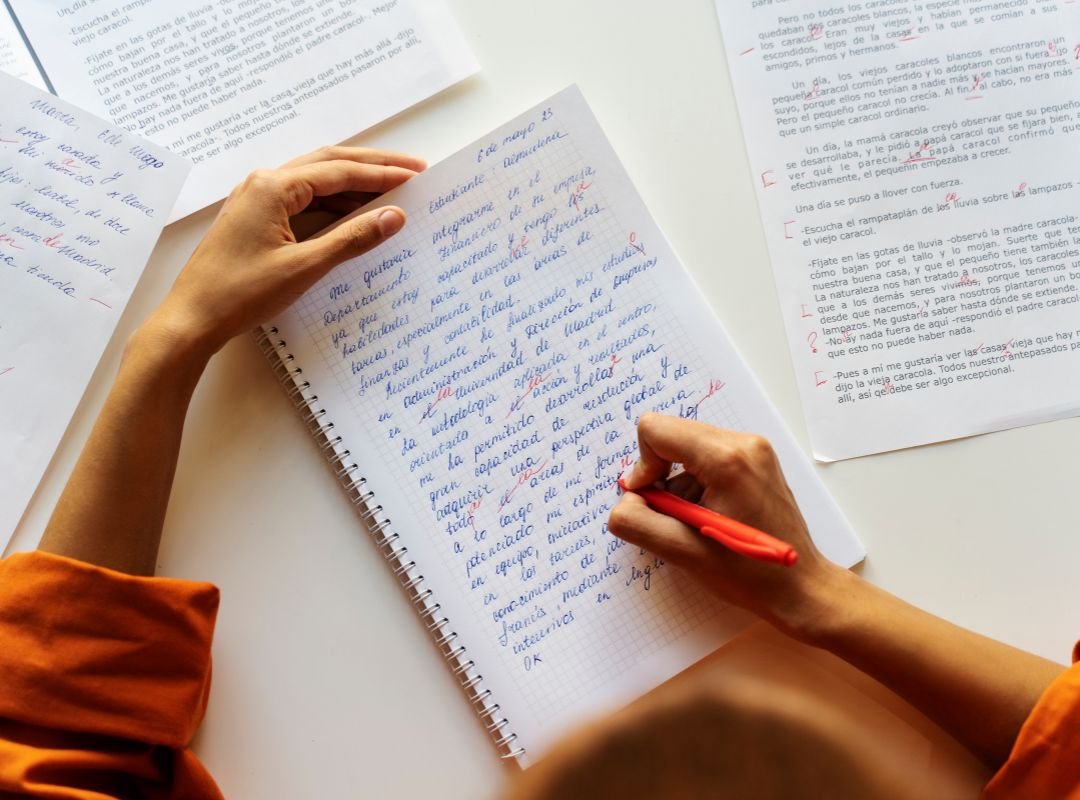 Un día se
-Escucha el rampa
viejo caracol.
-Fíjate en las gotas de lluvia -
cómo bajan por el tallo y lo mojan.
nuestra buena casa, y que el pequeño
La naturaleza nos han tratado a nosotros, los
que a los demás seres vivos, porque tenemos un
desde que nacemos, y para nosotros plantaron un bo
lampazos. Me gustaría saber hasta dónde se extiende.
No hay nada fuera de aquí -respondió el padre caracol-. Mejor
esto no puede haber nada.
mí me gustaría ver la casa vieja que hay más allá -dijo
caracola-. Todos nuestros antepasados pasaron por allí,
be ser algo excepcional.
estoy casada y
mi marido
6 de mayo 23
Estudiante: Almudena
Me gustaría integrarme en el
Departamento Financiero de su empresa,
ya que estoy capacitado y tengo
habilidades para desarrollar diferentes
tareas, especialmente en las áreas de
finanzas y contabilidad.
Recientemente he finalizado mis estudios
en administración y Dirección de Empresas
en el Universidad de Madrid
La metodología aplicada en el centro,
orientado a el acción y resultados,
me ha permitido desarrollar una
gran capacidad de resolución y
adquirir una perspectiva global de
todo el áreas de la empresa.
A lo largo de mi forma
potenciado mi espíritu
en equipo, iniciativa
en las tareas, a
conocimiento de idi
francés, mediante
intensivos en Ingl
OK
para
Pero no todos los caracoles
quedaban dos caracoles blancos, la especie más
los caracol. Eran muy viejos y habían permanecido
escondidos, lejos de la casas en la que se comían a sus
amigos, primos y hermanos.
Un día, los viejos caracoles blancos encontraron un
pequeña caracol común perdido y lo adoptaron con si fuera ijo
suyo, porque ellos no tenían a nadie más y se hacían mayores.
Pero el pequeño caracol no crecía. Al fin al cabo, no era más
que un simple caracol ordinario.
Un día, la mamá caracola creyó observar que su pequeño
se desarrollaba, y le pidió a papá caracol que se fijara bien, a
ver qué le parecía. La papá caracol confirmó que
efectivamente, el pequeñín empezaba a crecer.
Una día se puso a llover con fuerza.
-Escucha el rampataplán de los lluvia sobre las lampazos -
el viejo caracol.
-Fíjate en las gotas de lluvia -observó la madre caracola-
cómo bajan por el tallo y la mojan. Suerte que ten
nuestra buena casa, y que el pequeño tiene también la
La naturaleza nos han tratado a nosotros, los caracoles
que a los demás seres vivimos; porque tenemos un
desde que nacemos, y para nosotros plantaron un bo
lampazos. Me gustaría saber hasta dónde se extiende.
-No ay nada fuera de aquí -respondió el padre caracol
que esto no puede haber nada.
-Pues a mí me gustaría ver las casas vieja que hay m
dijo la vieja caracola. Todos nuestros antepasados pa
allí, así qe debe ser algo excepcional.